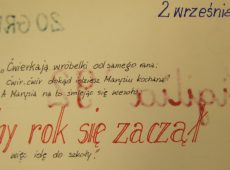 2 wrześni
„Ćwierkają wróbelki od samego rana:
Ćwir, ćwir dokąd idziesz Marysiu kochana"
A Marysia na to śmiejąc się wesoło:
y rok się zaczął
więc idę do szkoły."